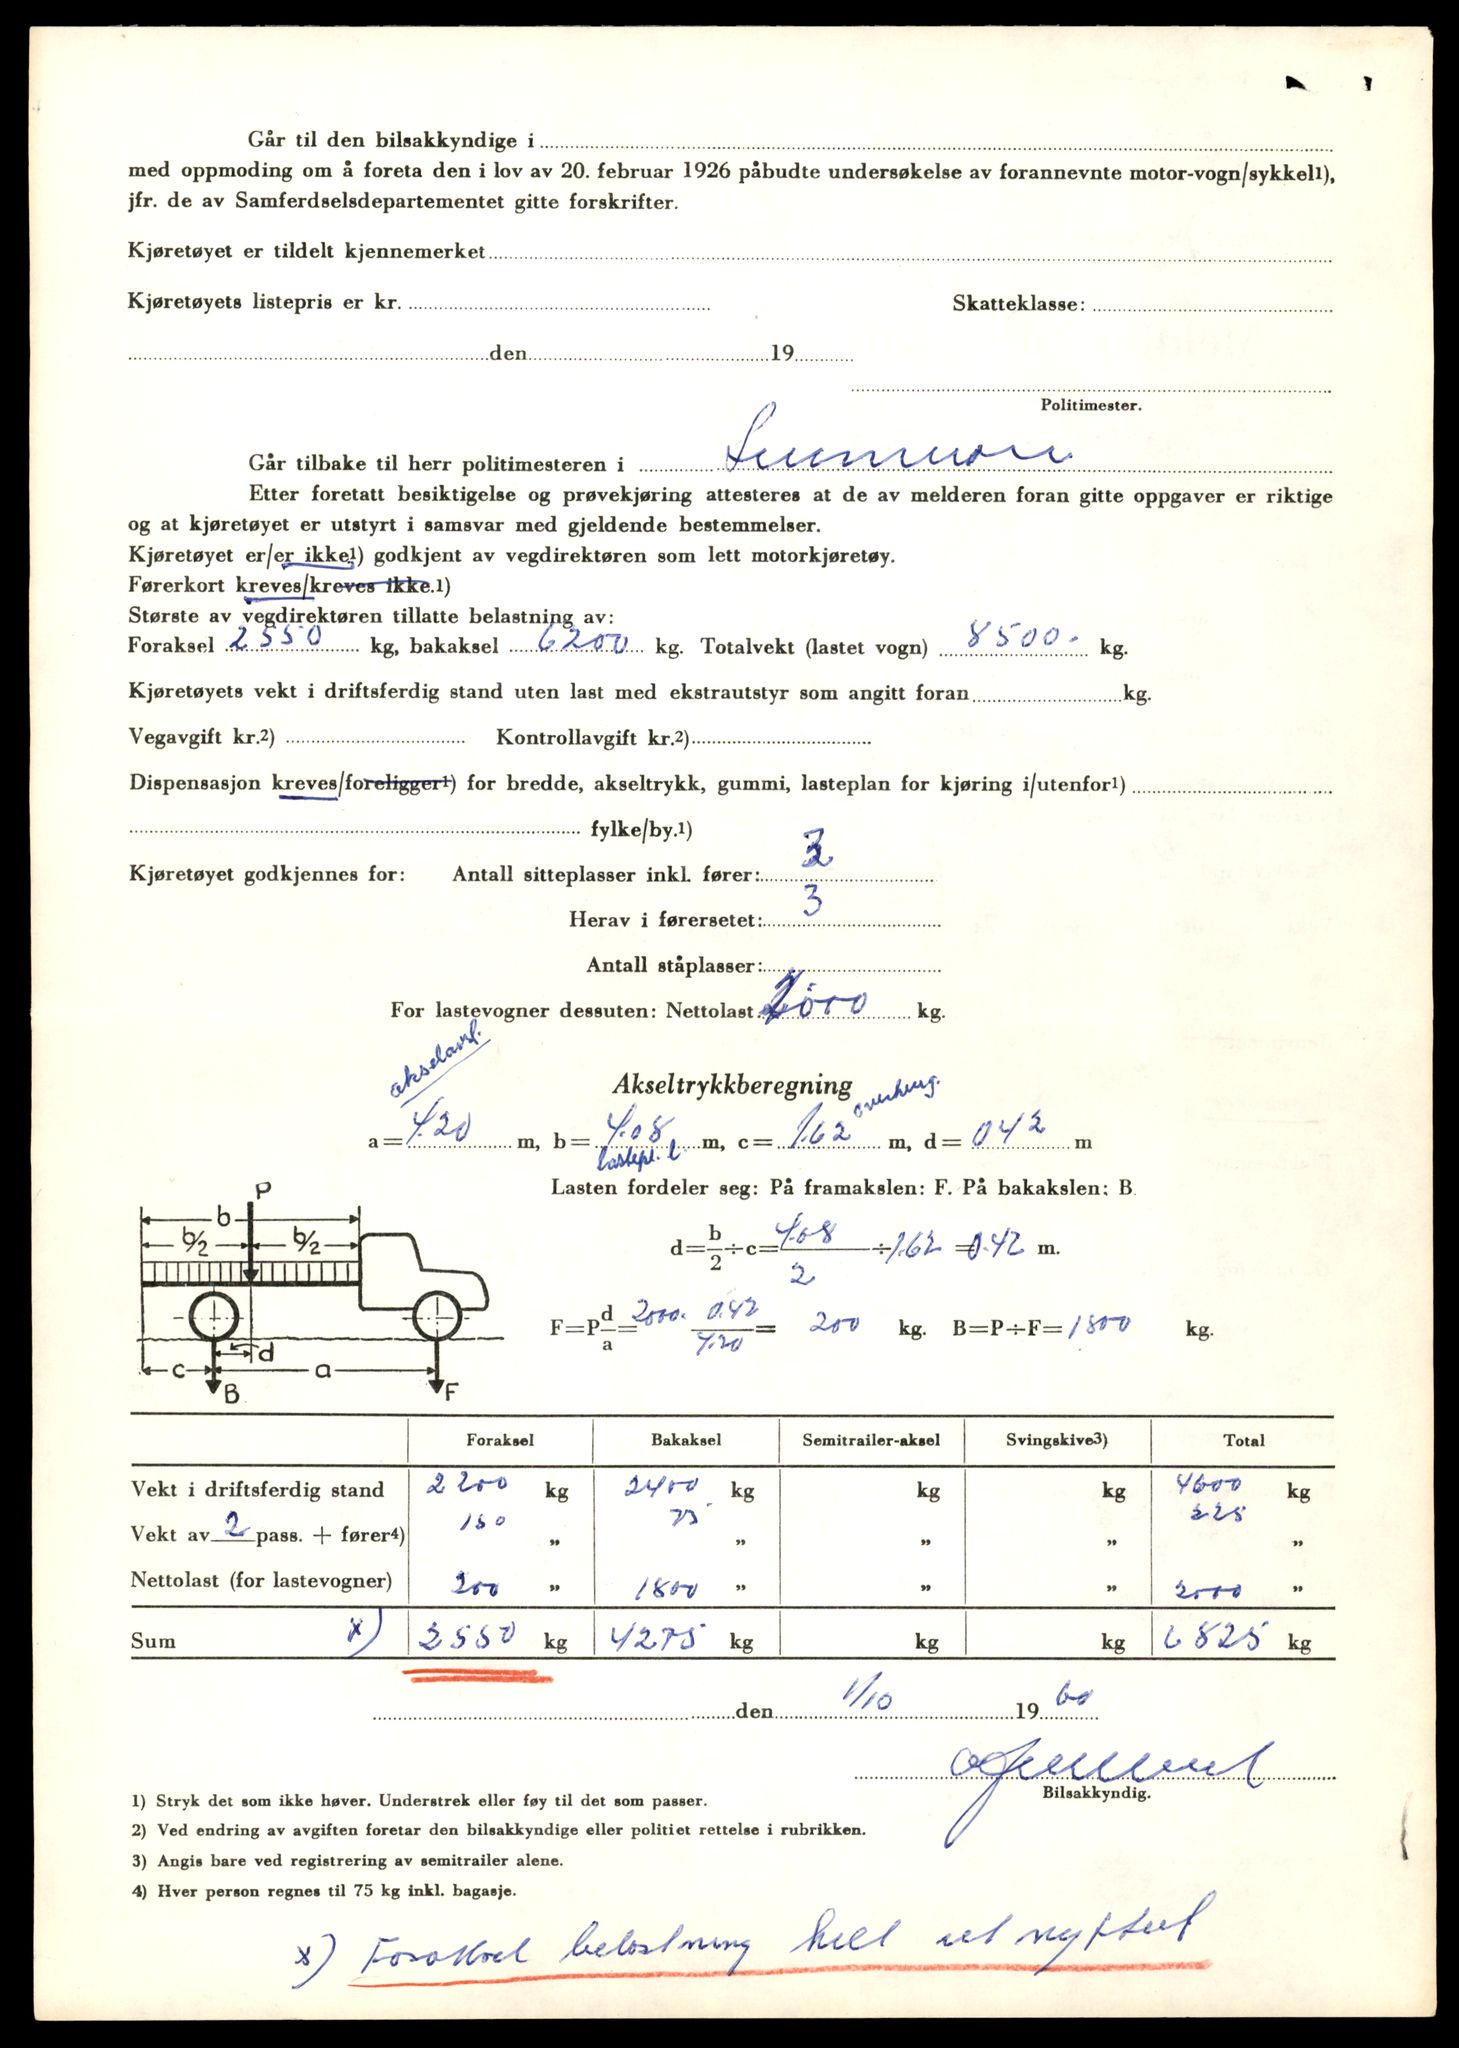 Går til den bilsakkyndige i
med oppmoding om å foreta den i lov av 20. februar 1926 påbudte undersøkelse av forannevnte motor-vogn/sykkel1),
jfr. de av Samferdselsdepartementet gitte forskrifter.
Kjøretøyet er tildelt kjennemerket
Kjøretøyets listepris er kr. Skatteklasse:
den 19
Politimester.
Går tilbake til herr politimesteren i Sunnmøre
Etter foretatt besiktigelse og prøvekjøring attesteres at de av melderen foran gitte oppgaver er riktige
og at kjøretøyet er utstyrt i samsvar med gjeldende bestemmelser.
Kjøretøyet er/er ikke1) godkjent av vegdirektøren som lett motorkjøretøy.
Førerkort kreves/kreves ikke.1)
Største av vegdirektøren tillatte belastning av:
Foraksel 2550 kg, bakaksel 6200 kg. Totalvekt (lastet vogn) 8500. kg.
Kjøretøyets vekt i driftsferdig stand uten last med ekstrautstyr som angitt foran kg.
Vegavgift kr.2) Kontrollavgift kr.2)
Dispensasjon kreves/foreligger1) for bredde, akseltrykk, gummi, lasteplan for kjøring i/utenfor1)
fylke/by.1)
Kjøretøyet godkjennes for: Antall sitteplasser inkl. fører: 3
Herav i førersetet: 3
Antall ståplasser:
For lastevogner dessuten: Nettolast 2000 kg.
akselavst.
Akseltrykkberegning
overheng.
a = 4.20 m, b = 4.08 m, c = 1.62 m, d = 042 m
lastepl. l.
Lasten fordeler seg: På framakslen: F. På bakakslen: B.
P
b
b/2 b/2
d = b/2 ÷ c = 4.08/2 ÷ 1.62 = 0.42 m.
F = P d/a = 2000. 0.42/4.20 = 200 kg. B = P ÷ F = 1800 kg.
d
c a
B F
Foraksel Bakaksel Semitrailer-aksel Svingskive3) Total
Vekt i driftsferdig stand 2200 kg 2400 kg kg kg 4600 kg
Vekt av 2 pass. + fører4) 150 „ 75 „ „ „ 225 „
Nettolast (for lastevogner) 200 „ 1800 „ „ „ 2000 „
Sum x) 2550 kg 4275 kg kg kg 6825 kg
den 1/10 19 60
Bilsakkyndig.
1) Stryk det som ikke høver. Understrek eller føy til det som passer.
2) Ved endring av avgiften foretar den bilsakkyndige eller politiet rettelse i rubrikken.
3) Angis bare ved registrering av semitrailer alene.
4) Hver person regnes til 75 kg inkl. bagasje.
x) Foraksel belastning helt utnyttet